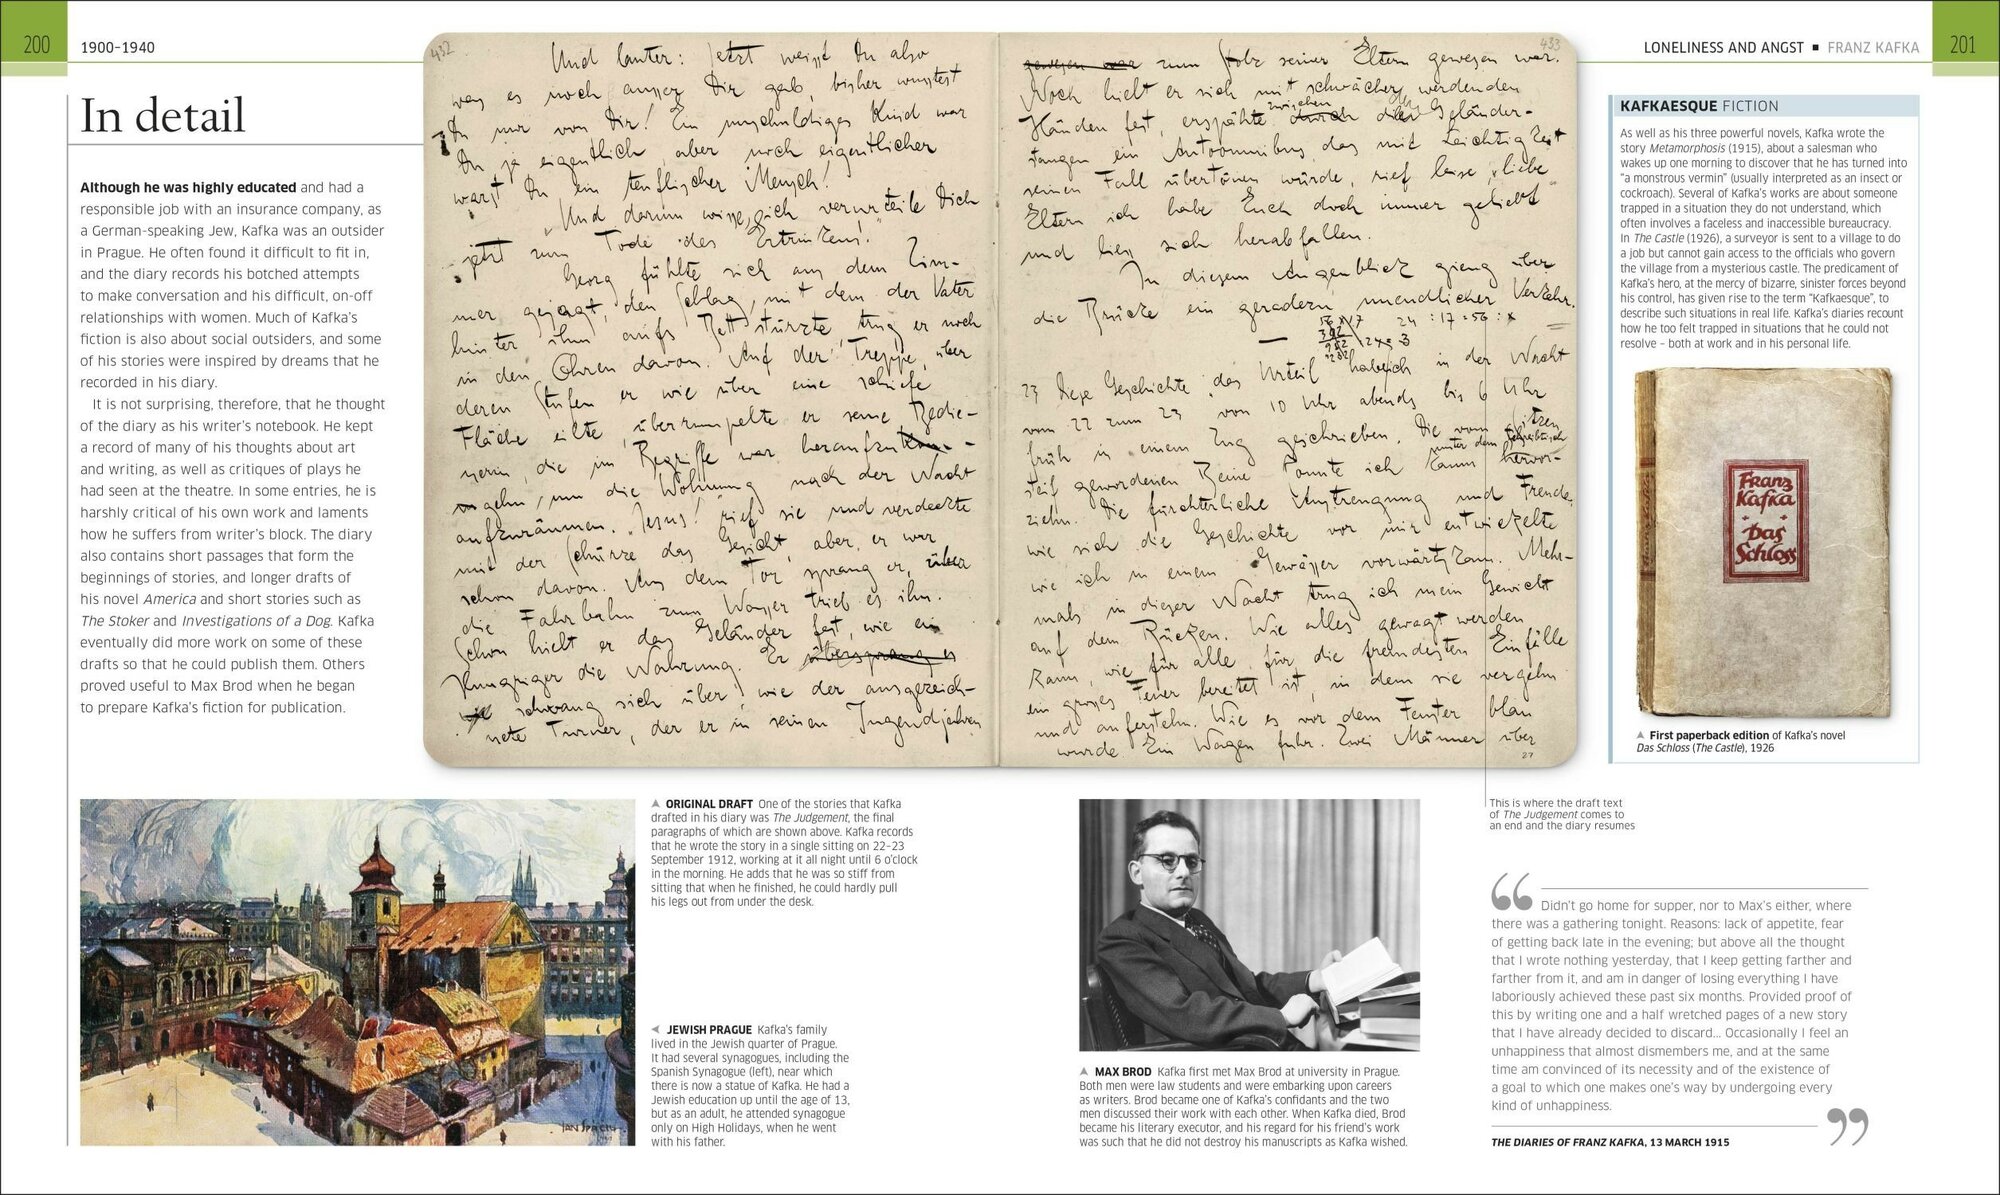 200
1900–1940
In detail
Although he was highly educated and had a
responsible job with an insurance company, as
a German-speaking Jew, Kafka was an outsider
in Prague. He often found it difficult to fit in,
and the diary records his botched attempts
to make conversation and his difficult, on-off
relationships with women. Much of Kafka's
fiction is also about social outsiders, and some
of his stories were inspired by dreams that he
recorded in his diary.
It is not surprising, therefore, that he thought
of the diary as his writer's notebook. He kept
a record of many of his thoughts about art
and writing, as well as critiques of plays he
had seen at the theatre. In some entries, he is
harshly critical of his own work and laments
how he suffers from writer's block. The diary
also contains short passages that form the
beginnings of stories, and longer drafts of
his novel America and short stories such as
The Stoker and Investigations of a Dog. Kafka
eventually did more work on some of these
drafts so that he could publish them. Others
proved useful to Max Brod when he began
to prepare Kafka's fiction for publication.
432
Und lauter: „Jetzt weisst Du also
was es noch ausser Dir gab, bisher wusstest
Du nur von Dir! Ein unschuldiges Kind war
Du ja eigentlich, aber noch eigentlicher
warst Du ein teuflischer Mensch!
„Und darum wisse, ich verurteile Dich
jetzt zum Tode des Ertrinkens!"
Georg fühlte sich aus dem Zim-
mer gejagt, den Schlag, mit dem der Vater
hinter ihm aufs Bett stürzte trug er noch
in den Ohren davon. Auf der Treppe, über
deren Stufen er wie über eine schiefe
Fläche eilte, überrumpelte er seine Bedie-
nerin, die im Begriffe war heraufzu
gehn, um die Wohnung nach der Nacht
aufzuräumen. „Jesus!" rief sie und verdeckte
mit der Schürze das Gesicht, aber er war
schon davon. Aus dem Tor sprang er, über
die Fahrbahn zum Wasser trieb es ihn.
Schon hielt er das Geländer fest, wie ein
Hungriger die Nahrung. Er übersprang es
schwang sich über, wie der ausgezeich-
nete Turner, der er in seinen Jugendjahren
433
gewesen war zum Stolz seiner Eltern gewesen war.
Noch hielt er sich mit schwächer werdenden
Händen fest, erspähte zwischen den Geländer-
stangen ein Autoomnibus, das mit Leichtigkeit
seinen Fall übertönen würde, rief leise „Liebe
Eltern ich habe Euch doch immer geliebt"
und liess sich herabfallen.
In diesem Augenblick gieng über
die Brücke ein geradezu unendlicher Verkehr.
56 x 17
24 : 17 = 56 : x
392
952
23 Diese Geschichte „das Urteil" habe ich in der Nacht
vom 22 zum 23 von 10 Uhr abends bis 6 Uhr
früh in einem Zug geschrieben. Die vom Sitzen
steif gewordenen Beine konnte ich kaum unter dem Schreibtisch hervor-
ziehn. Die fürchterliche Anstrengung und Freude,
wie sich die Geschichte vor mir entwickelte
wie ich in einem Gewässer vorwärtskam. Mehr-
mals in dieser Nacht trug ich mein Gewicht
auf dem Rücken. Wie alles gewagt werden
kann, wie für alle, für die fremdesten Einfälle
ein grosses Feuer bereitet ist, in dem sie vergehn
und auferstehn. Wie es vor dem Fenster blau
wurde. Ein Wagen fuhr. Zwei Männer über
27
LONELINESS AND ANGST ▪ FRANZ KAFKA
201
KAFKAESQUE FICTION
As well as his three powerful novels, Kafka wrote the
story Metamorphosis (1915), about a salesman who
wakes up one morning to discover that he has turned into
"a monstrous vermin" (usually interpreted as an insect or
cockroach). Several of Kafka's works are about someone
trapped in a situation they do not understand, which
often involves a faceless and inaccessible bureaucracy.
In The Castle (1926), a surveyor is sent to a village to do
a job but cannot gain access to the officials who govern
the village from a mysterious castle. The predicament of
Kafka's hero, at the mercy of bizarre, sinister forces beyond
his control, has given rise to the term "Kafkaesque", to
describe such situations in real life. Kafka's diaries recount
how he too felt trapped in situations that he could not
resolve – both at work and in his personal life.
Franz
Kafka
Das
Schloss
First paperback edition of Kafka's novel
Das Schloss (The Castle), 1926
ORIGINAL DRAFT One of the stories that Kafka
drafted in his diary was The Judgement, the final
paragraphs of which are shown above. Kafka records
that he wrote the story in a single sitting on 22–23
September 1912, working at it all night until 6 o'clock
in the morning. He adds that he was so stiff from
sitting that when he finished, he could hardly pull
his legs out from under the desk.
JEWISH PRAGUE Kafka's family
lived in the Jewish quarter of Prague.
It had several synagogues, including the
Spanish Synagogue (left), near which
there is now a statue of Kafka. He had a
Jewish education up until the age of 13,
but as an adult, he attended synagogue
only on High Holidays, when he went
with his father.
MAX BROD Kafka first met Max Brod at university in Prague.
Both men were law students and were embarking upon careers
as writers. Brod became one of Kafka's confidants and the two
men discussed their work with each other. When Kafka died, Brod
became his literary executor, and his regard for his friend's work
was such that he did not destroy his manuscripts as Kafka wished.
This is where the draft text
of The Judgement comes to
an end and the diary resumes
“ Didn't go home for supper, nor to Max's either, where
there was a gathering tonight. Reasons: lack of appetite, fear
of getting back late in the evening; but above all the thought
that I wrote nothing yesterday, that I keep getting farther and
farther from it, and am in danger of losing everything I have
laboriously achieved these past six months. Provided proof of
this by writing one and a half wretched pages of a new story
that I have already decided to discard... Occasionally I feel an
unhappiness that almost dismembers me, and at the same
time am convinced of its necessity and of the existence of
a goal to which one makes one's way by undergoing every
kind of unhappiness. ”
THE DIARIES OF FRANZ KAFKA, 13 MARCH 1915